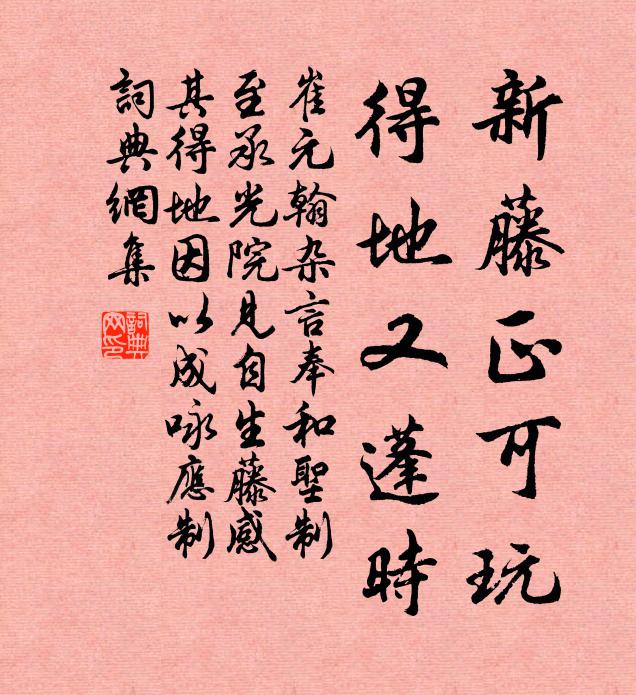 新藤正可玩
得地又蓬時
崔元翰杂言奉和聖制
至承光院見自生藤感
其得地因以成咏應制
詞典網集
詞典
网印